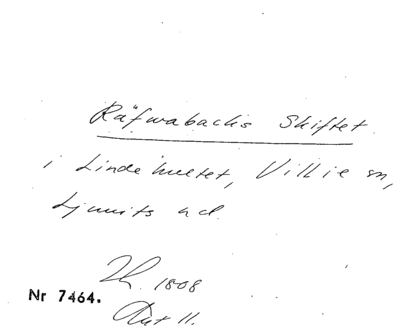 Räfwabacks Skiftet
i Lindehultet, Villie sn,
Ljunits hd.
1808
Nr 7464.
Akt 11.